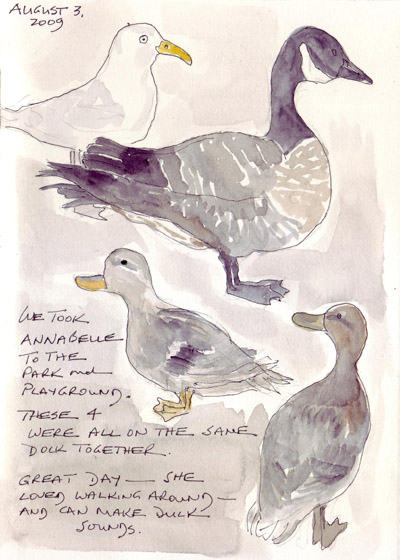 AUGUST 3,
2009
WE TOOK
ANNABELLE
TO THE
PARK and
PLAYGROUND.
THESE 4
WERE ALL ON THE SAME
DOCK TOGETHER.
GREAT DAY — SHE
LOVED WALKING AROUND —
AND CAN MAKE DUCK
SOUNDS.